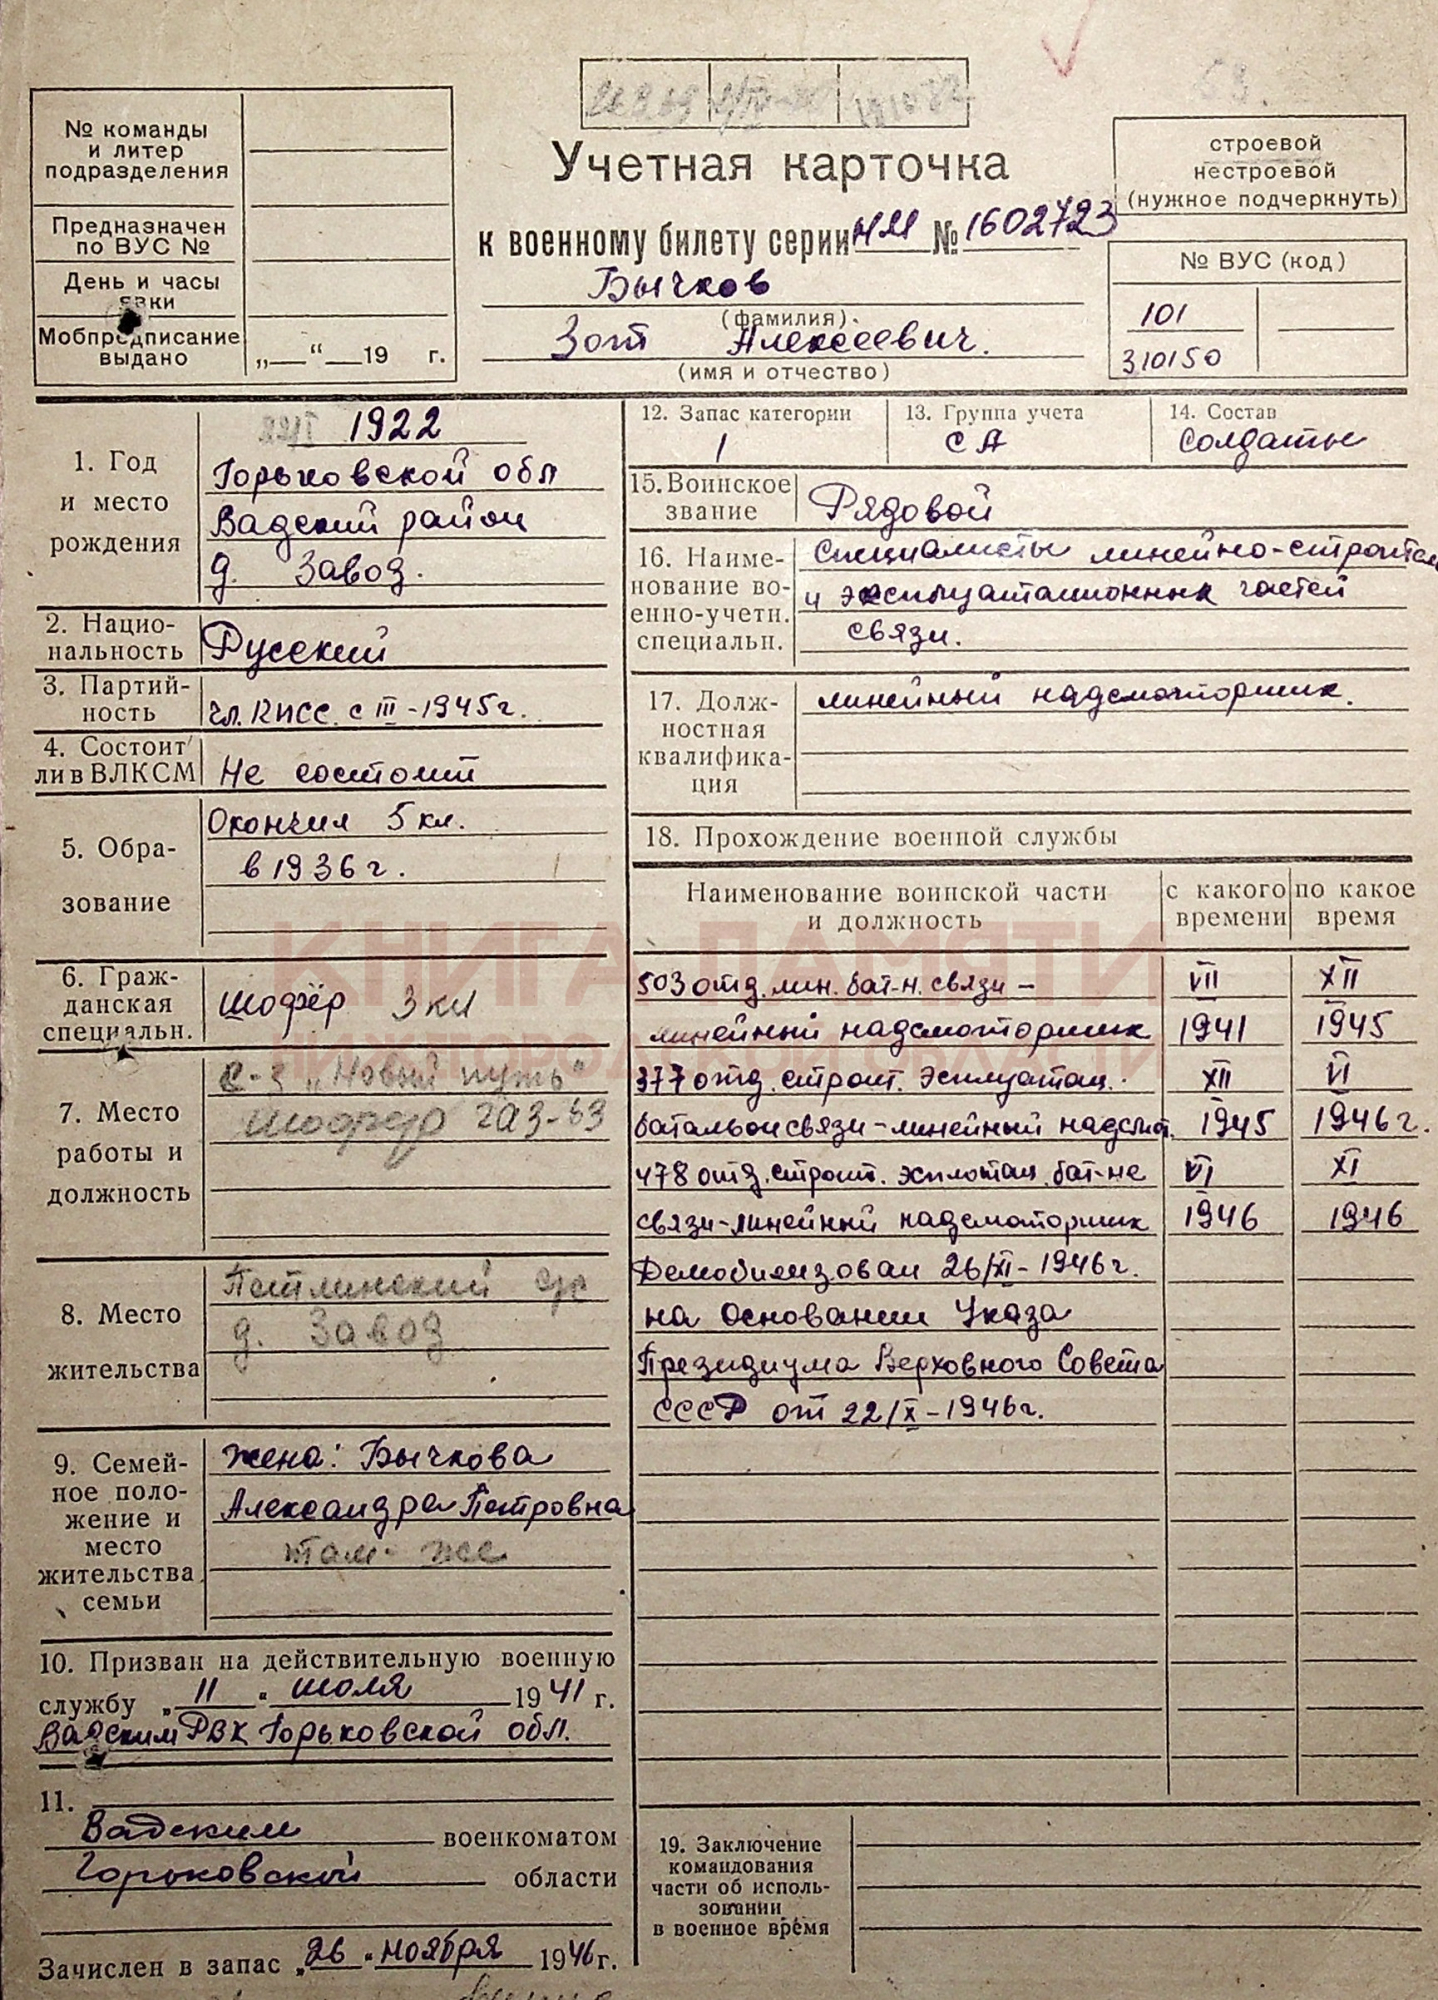 № команды
и литер
подразделения
Предназначен
по ВУС №
День и часы
явки
Мобпредписание
выдано
„ “ 19 г.
Учетная карточка
к военному билету серии НМ № 1602723
Бычков
(фамилия)
Зот Алексеевич.
(имя и отчество)
строевой
нестроевой
(нужное подчеркнуть)
№ ВУС (код)
101
310150
1. Год
и место
рождения
1922
Горьковской обл
Вадский район
д. Завод.
2. Нацио-
нальность
Русский
3. Партий-
ность
чл. КПСС. с III-1945г.
4. Состоит
ли в ВЛКСМ
Не состоит
5. Обра-
зование
Окончил 5 кл.
в 1936 г.
6. Граж-
данская
специальн.
шофёр 3 кл
7. Место
работы и
должность
с-з „Новый путь“
шофер ГАЗ-63
8. Место
жительства
Петлинский с/с
д. Завод
9. Семей-
ное поло-
жение и
место
жительства
семьи
жена: Бычкова
Александра Петровна
там-же
10. Призван на действительную военную
службу „11“ июля 1941 г.
Вадским РВК Горьковской обл.
11.
Вадским военкоматом
Горьковской области
Зачислен в запас „26“ ноября 1946 г.
12. Запас категории
1
13. Группа учета
СА
14. Состав
Солдаты
15. Воинское
звание
Рядовой
16. Наиме-
нование во-
енно-учетн.
специальн.
Специалисты линейно-строител
и эксплуатационных частей
связи.
17. Долж-
ностная
квалифика-
ция
линейный надсмотрщик.
18. Прохождение военной службы
Наименование воинской части
и должность
с какого
времени
по какое
время
503 отд. лин. бат-н. связи – VII XII
линейный надсмотрщик 1941 1945
377 отд. строит. эсплуатац. XII VI
батальон связи-линейный надсмот. 1945 1946 г.
478 отд. строит. эсплотац. бат-не VI XI
связи-линейный надсмотрщик 1946 1946
Демобилизован 26/XI-1946г.
на основании Указа
Президиума Верховного Совета
СССР от 22/X-1946г.
19. Заключение
командования
части об исполь-
зовании
в военное время
КНИГА ПАМЯТИ
НИЖЕГОРОДСКОЙ ОБЛАСТИ